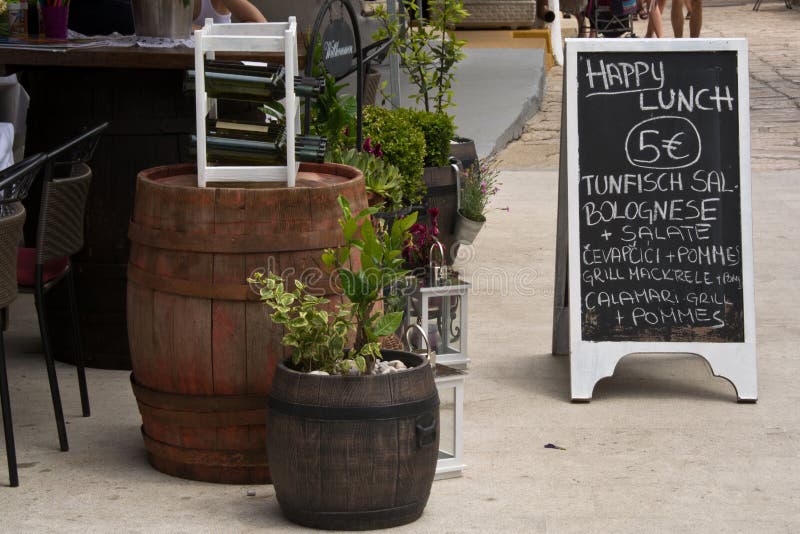 Willkommen
HAPPY
LUNCH
5€
TUNFISCH SAL.
BOLOGNESE
+ SALATE
ČEVAPČIĆI + POMMES
GRILL MACKRELE +
CALAMARI-GRILL
+ POMMES
dreamstime